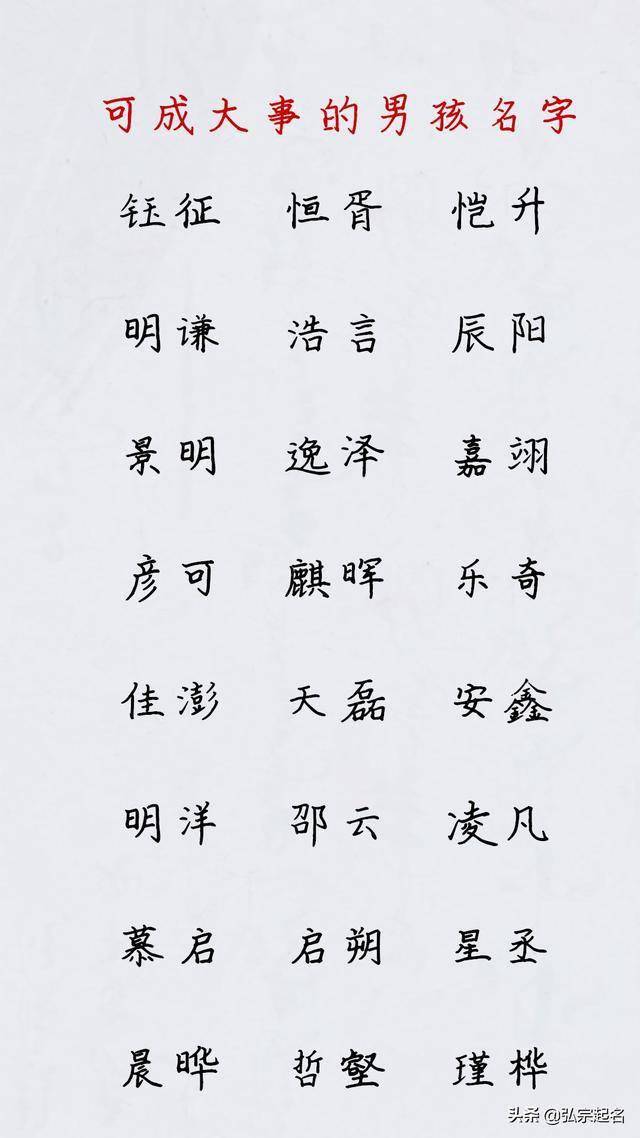 可成大事的男孩名字
钰征 恒胥 恺升
明谦 浩言 辰阳
景明 逸泽 嘉翊
彦可 麒晖 乐奇
佳澎 天磊 安鑫
明洋 邵云 凌凡
慕启 启朔 星丞
晨晔 哲壑 瑾桦
头条 @弘宗起名